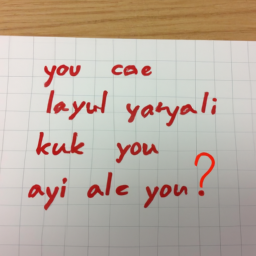 you cae
layul yaryali
kuk you
ayi ale you?